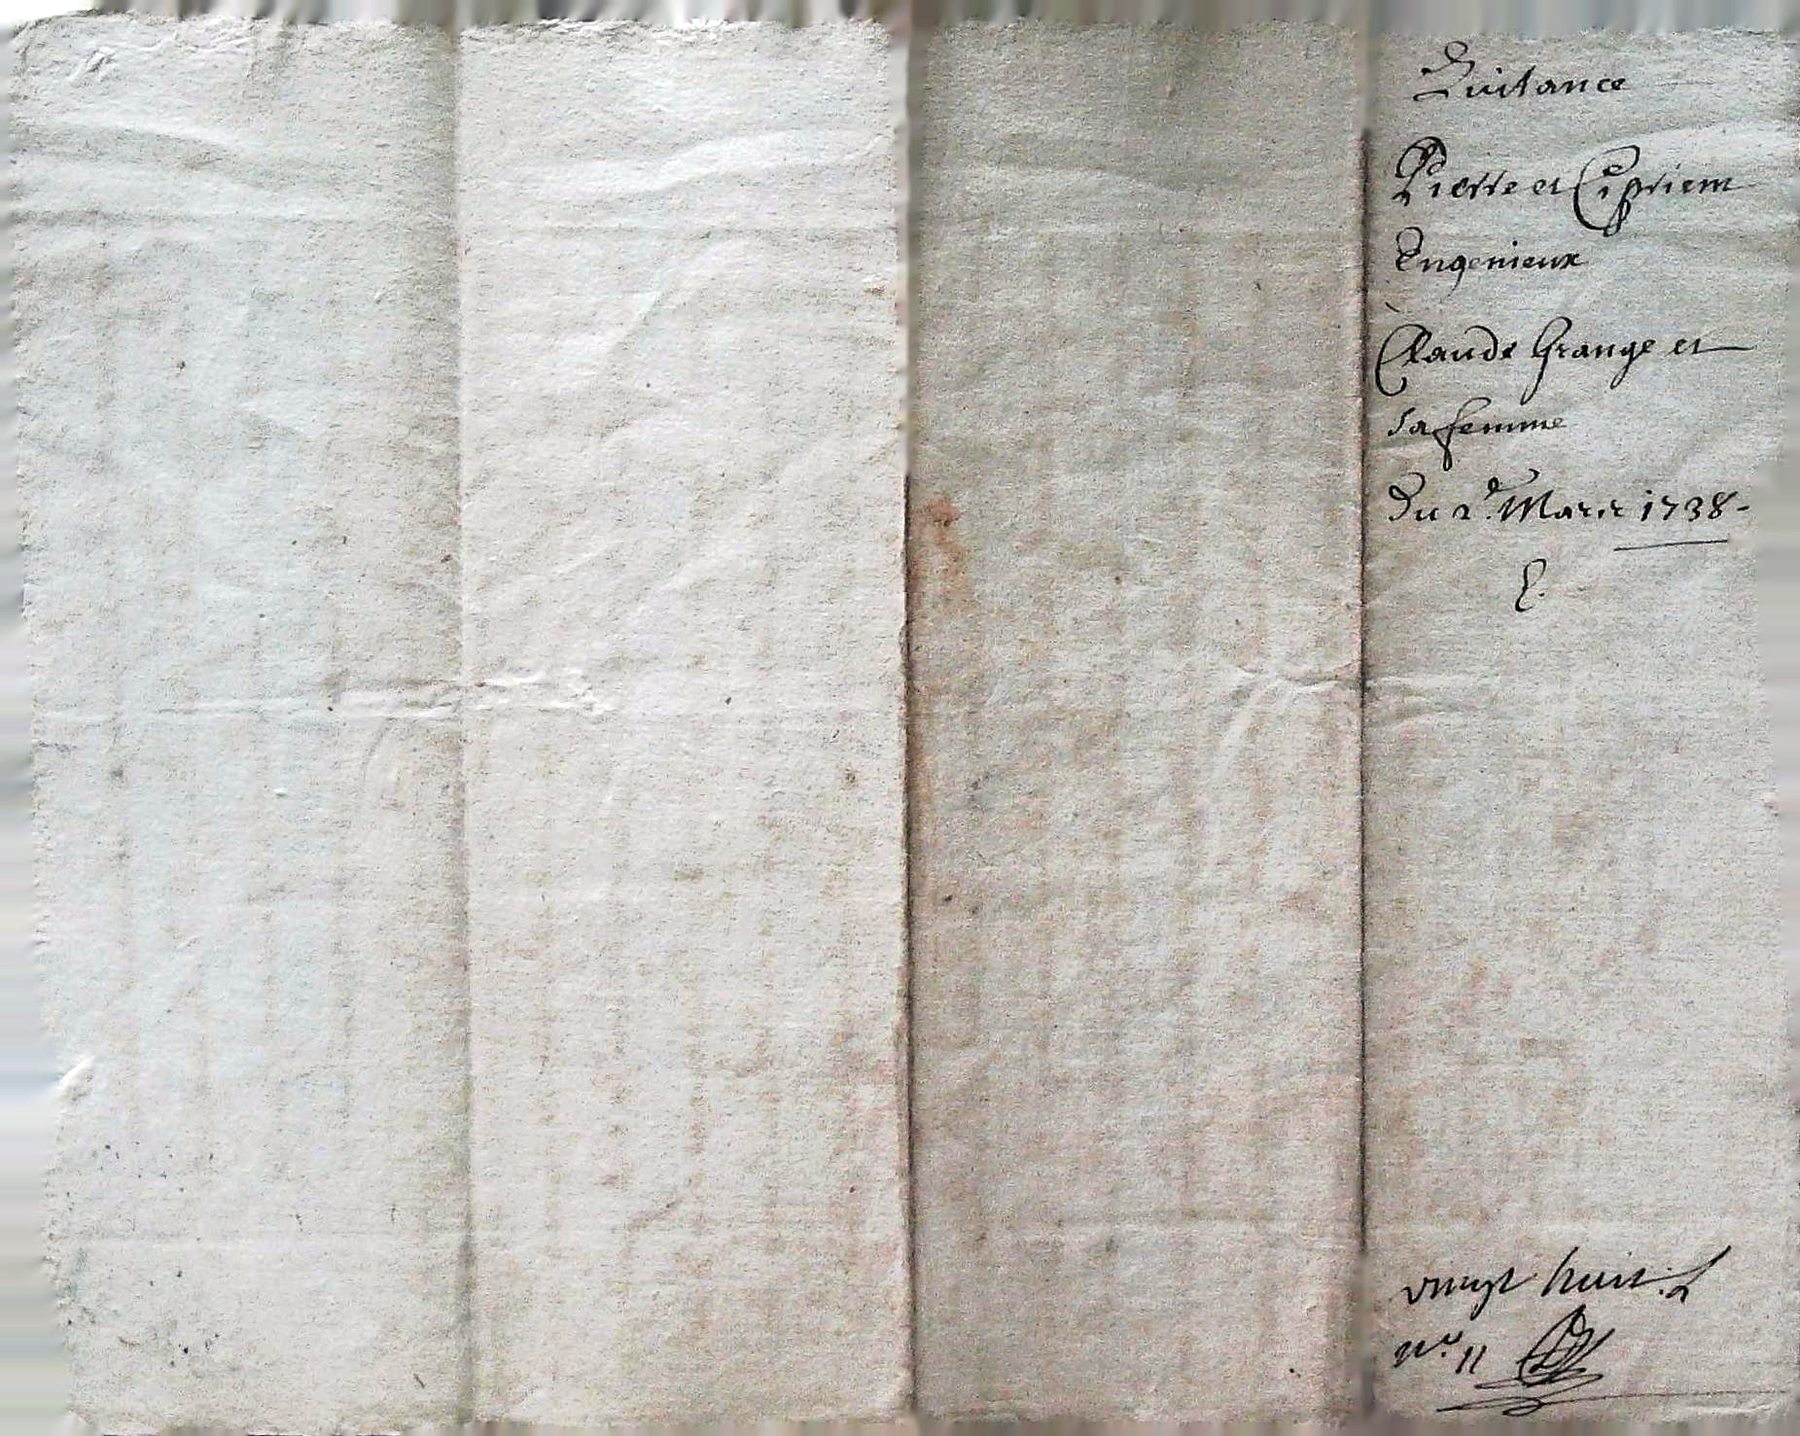 Quitance
Pierre et Cipriem
Engenieux
à
Claude Grange et
sa femme
Du 2.e Mars 1738-
E.
vingt huit
N.o 11